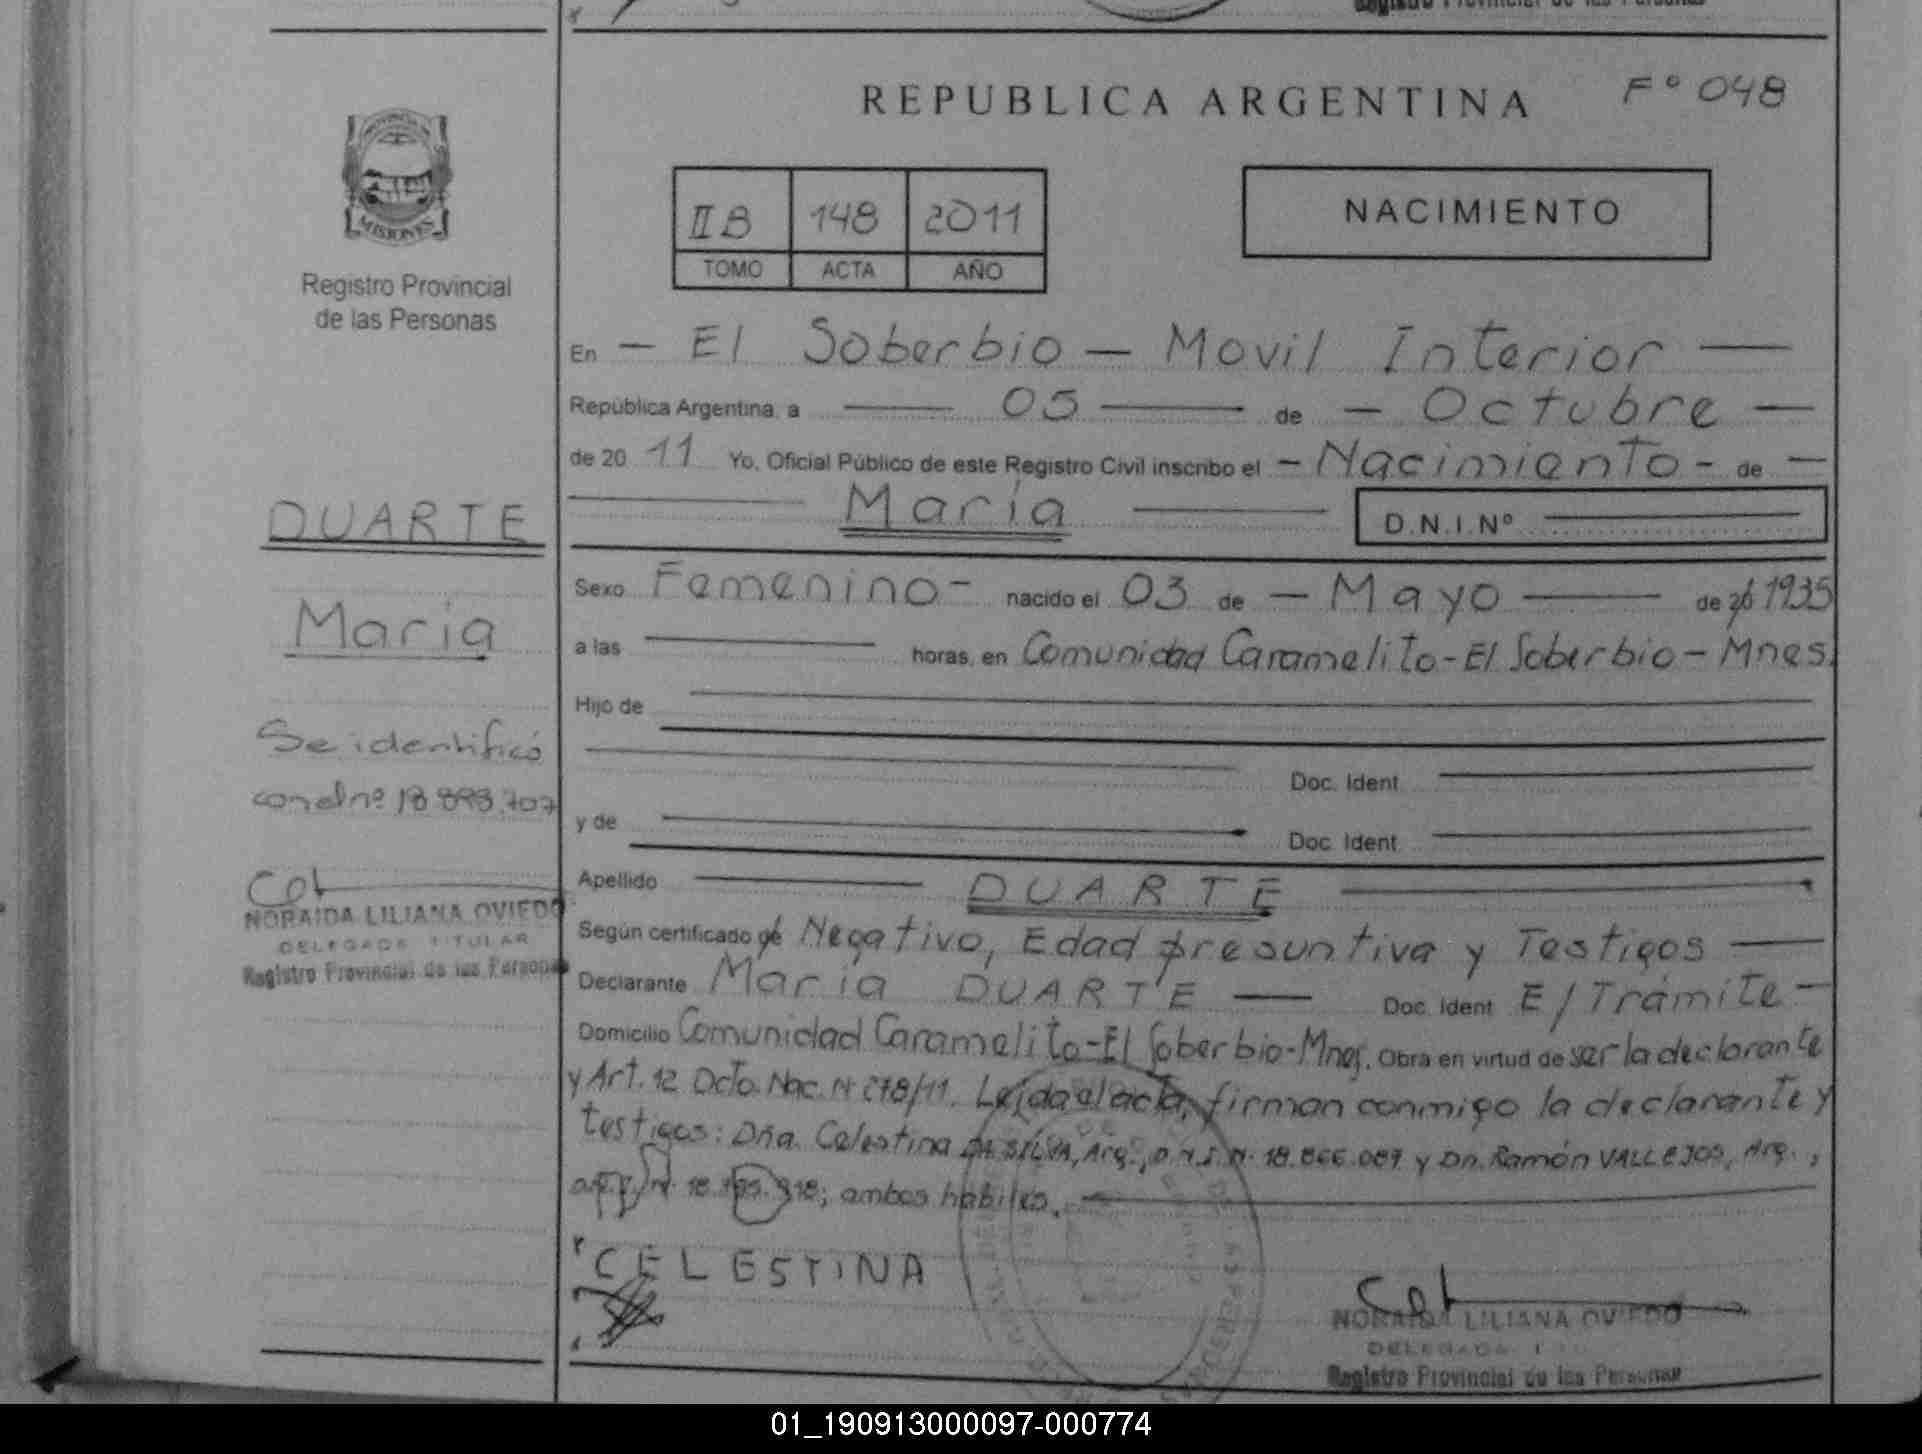 Registro Provincial de las Personas
REPUBLICA ARGENTINA
Fº 048
PROVINCIA DE
MISIONES
Registro Provincial
de las Personas
IIB 148 2011
TOMO ACTA AÑO
NACIMIENTO
En - El Soberbio - Movil Interior
República Argentina, a 05 de - Octubre
de 20 11 Yo, Oficial Público de este Registro Civil inscribo el - Nacimiento - de
María
D.N.I.Nº
DUARTE
María
Se identificó
con el nº 18.898.707
NORAIDA LILIANA OVIEDO
DELEGADA TITULAR
Registro Provincial de las Personas
Sexo Femenino - nacido el 03 de - Mayo de 20 1935
a las horas, en Comunidad Caramelito - El Soberbio - Mnes.
Hijo de
Doc. Ident.
y de Doc. Ident.
Apellido DUARTE
Según certificado de Negativo, Edad presuntiva y Testigos
Declarante María DUARTE Doc. Ident. E/Trámite -
Domicilio Comunidad Caramelito - El Soberbio - Mnes. Obra en virtud de ser la declarante
y Art. 12 Dcto. Nac. N 278/11. Leída el acta, firman conmigo la declarante y
testigos: Dña. Celestina DA SILVA, Arg., D.N.I. N. 18.866.089 y Dn. Ramón VALLEJOS, Arg.,
ambos hábiles.
CELESTINA
NORAIDA LILIANA OVIEDO
DELEGADA
Registro Provincial de las Personas
01_190913000097-000774